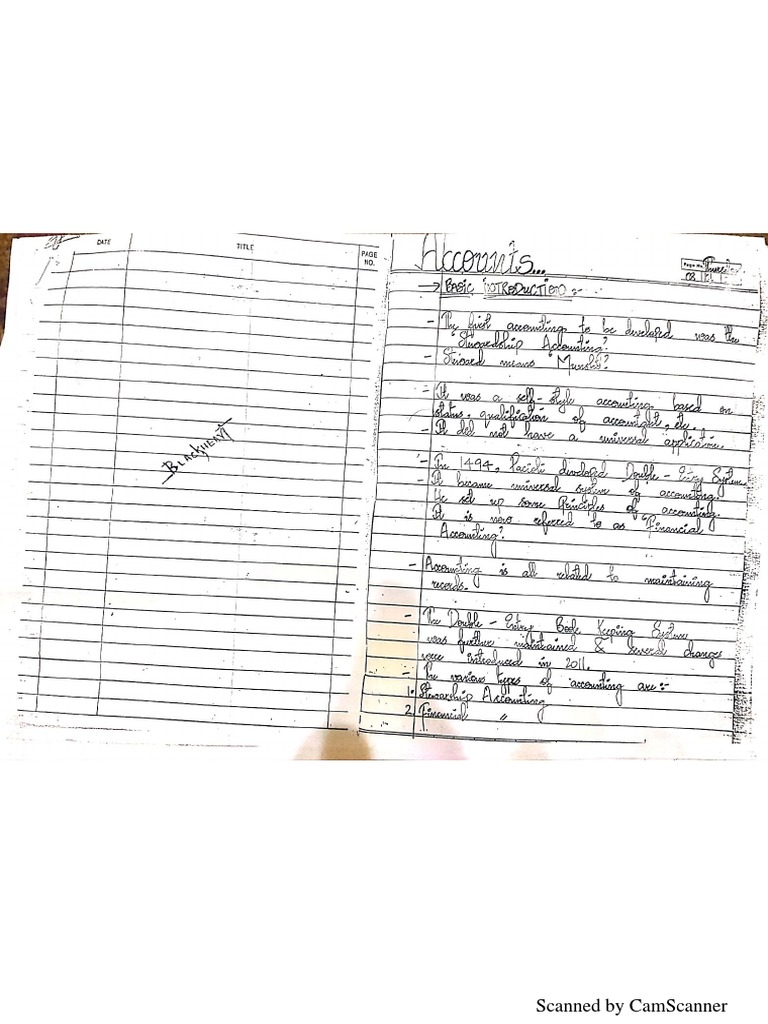 DATE
TITLE
PAGE NO.
BLACKHEART
Accounts...
Page No.
→ BASIC INTRODUCTION :-
- The first accounting to be developed was the
"Stewardship Accounting".
- Steward means "Munshi".
- It was a self-style accounting based on
status, qualification of accountant, etc.
- It did not have a universal application.
- In 1494, Pacioli developed Double-Entry System.
- It became universal system of accounting.
He set up some Principles of accounting.
It is now referred to as "Financial
Accounting".
- Accounting is all related to maintaining
records.
- The Double-Entry Book Keeping System
was further maintained & several changes
were introduced in 2011.
- The various types of accounting are:-
1. Stewarship Accounting
2. Financial "
Scanned by CamScanner